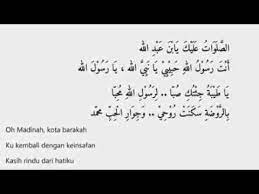 الصَّلَوَاتُ عَلَيْكَ يَابْنَ عَبْدِ الله
أَنْتَ رَسُولُ اللهِ حَبِيْبِيْ يَا نَبِيَّ الله ، يَا رَسُوْلَ الله
يَا طَيْبَةُ جِئْتُكِ صَبًّا .. لِرَسُوْلِ اللهِ مُحِبًّا
بِالرَّوْضَةِ سَكَنَتْ رُوْحِيْ .. وَجِوَارِ الْحِبِّ مُحَمَّد
Oh Madinah, kota barakah
Ku kembali dengan keinsafan
Kasih rindu dari hatiku